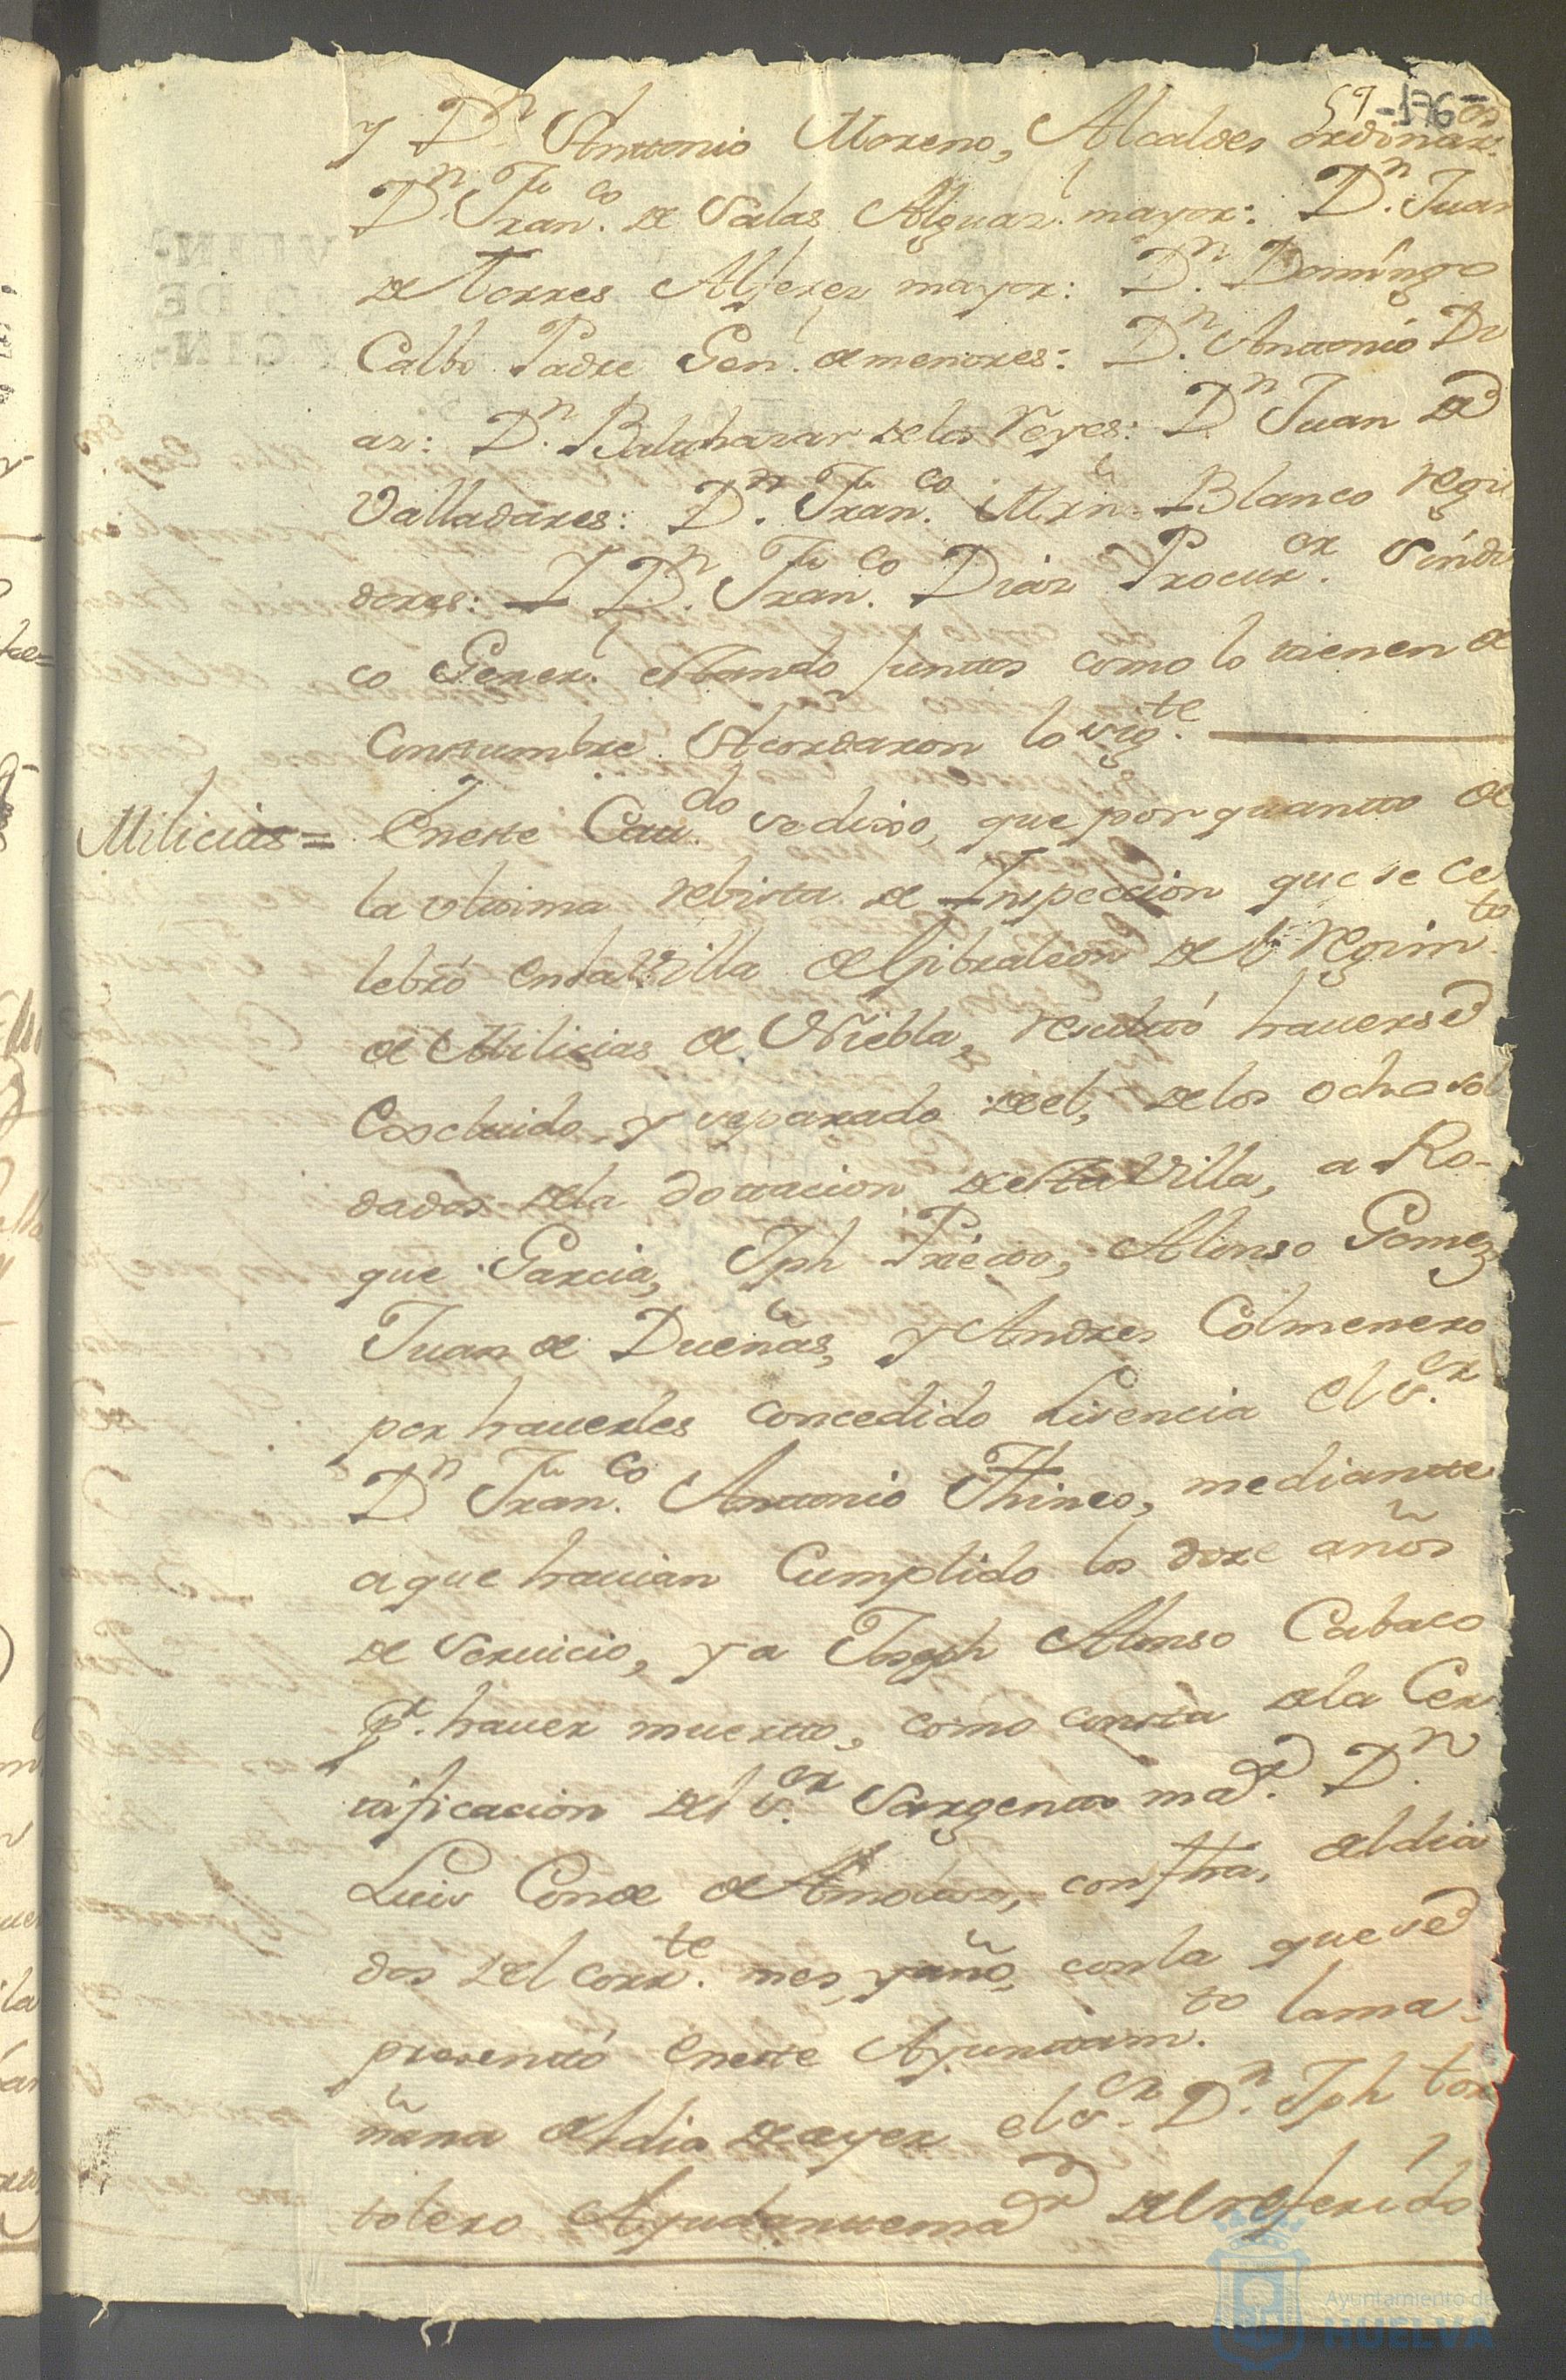 59 -176-
y Dn. Antonio Moreno, Alcaldes ordinars.
Dn. Franco. de Salas Alguaz. mayor: Dn. Juan
de Torres Alferez mayor: Dn. Domingo
Calbo Padre Gen. de menores: Dn. Antonio Di
az: Dn. Balthazar de los Reyes: Dn. Juan de
Valladares: Dn. Franco. Mrn. Blanco regi
dores: Y Dn. Franco. Diaz Procuror. Sindi
co Gener. estando juntos como lo tienen de
Constumbre Acordaron lo sigte.
Milicias = En este Caudo. se dixo, que por quanto de
la vltima rebista de Inspeccion que se ce
lebró en la Villa de Gibraleon del Regimto
de Milicias de Niebla, resultó hauerse
Excluido, y separado del, de los ocho sol
dados de la dotacion desta Villa, a Ro-
que Garcia, Jph Prieto, Alonso Gomez,
Juan de Dueñas, y Andres Colmenero
por hauerles concedido Lisencia el Sor.
Dn. Franco. Antonio Thineo, mediante
a que hauian Cumplido los doze años
de Seruicio, y a Joseph Alonso Cabaco
pr. hauer muerto, como consta de la Cer
tificacion del Sor. Sargento mar. Dn.
Luis Conde de confha, del dia
dos del corrte. mes, y año, con la que se
presentó en este Ayuntamto. la ma-
ñana del dia de ayer el Sor. Dn. Jph tor
tolero Ayudante mar. del referido
Ayuntamiento de
HUELVA